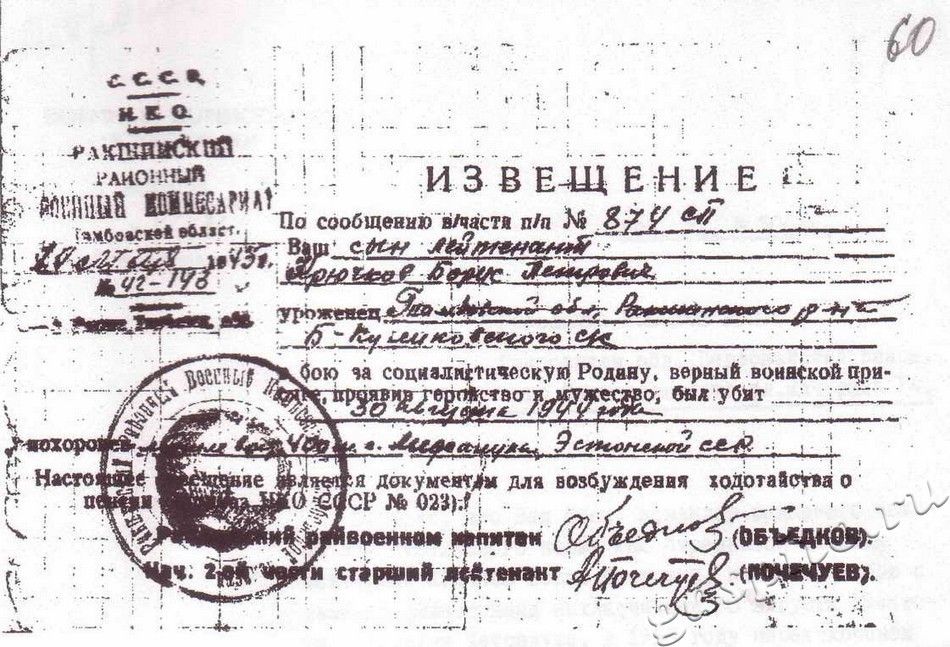 60
С.С.С.Р.
Н.К.О.
РАКШИНСКИЙ
РАЙОННЫЙ
ВОЕННЫЙ КОМИССАРИАТ
Тамбовской област.
1945г.
№ 42-148
ИЗВЕЩЕНИЕ
По сообщению в/части п/п № 874 сп
Ваш сын лейтенант
Крючков Борис Петрович
уроженец Тамбовской обл, Ракшинского р-на
Б-Куликовского с/с
в бою за социалистическую Родину, верный воинской при-
сяге, проявив геройство и мужество, был убит
30 августа 1944 года
похоронен 400 м. Эстонской ССР
Настоящее извещение является документом для возбуждения ходотайства о
пенсии НКО СССР № 023).
Ракшинский райвоенком капитан Объедков (ОБЪЕДКОВ).
Нач. 2-ой части старший лейтенант Почечуев (ПОЧЕЧУЕВ).